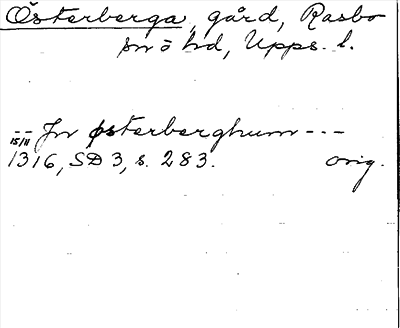 Österberga, gård, Rasbo
sn o hd, Upps. l.
-- Jn østerberghum ---
15/11 1316, SD 3, s. 283. orig.